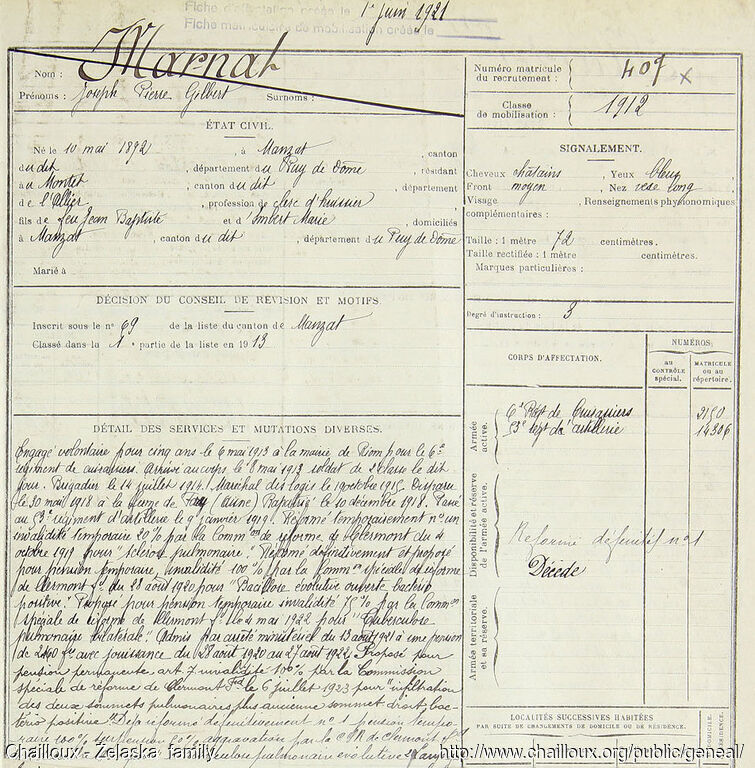 Fiche d'affectation créée le 1er Juin 1921
Fiche matriculaire de mobilisation créée le
Nom : Marnat
Prénoms : Joseph Pierre Gilbert Surnoms :
Numéro matricule du recrutement : 407 x
Classe de mobilisation : 1912
ÉTAT CIVIL.
Né le 10 mai 1892, à Manzat, canton
du dit, département du Puy de Dôme, résidant
à u Montet, canton du dit, département
de l'Allier, profession de clerc d'huissier
fils de feu Jean Baptiste et d'Imbert Marie, domiciliés
à Manzat, canton du dit, département du Puy de Dôme
Marié à
SIGNALEMENT.
Cheveux chatains, Yeux bleus
Front moyen, Nez long
Visage, Renseignements physionomiques
complémentaires :
Taille : 1 mètre 72 centimètres.
Taille rectifiée : 1 mètre centimètres.
Marques particulières :
Degré d'instruction : 3
DÉCISION DU CONSEIL DE RÉVISION ET MOTIFS.
Inscrit sous le n° 69 de la liste du canton de Manzat
Classé dans la 1e partie de la liste en 1913
CORPS D'AFFECTATION.
NUMÉROS
AU CONTRÔLE spécial.
MATRICULE OU AU répertoire.
Armée active.
6e Régt de Cuirassiers 2150
53e regt d'artillerie 14306
Disponibilité et réserve de l'armée active.
Réforme définitif n° 1
Décédé
Armée territoriale et sa réserve.
LOCALITÉS SUCCESSIVES HABITÉES
PAR SUITE DE CHANGEMENTS DE DOMICILE OU DE RÉSIDENCE.
DÉTAIL DES SERVICES ET MUTATIONS DIVERSES.
Engagé volontaire pour cinq ans le 6 mai 1913 à la mairie de Riom pour le 6e
régiment de cuirassiers. Arrivé au corps le 8 mai 1913 soldat de 2e classe le dit
jour. Brigadier le 14 juillet 1914. Maréchal des logis le 19 octobre 1915. Disparu
le 30 mai 1918 à la ferme de (Aisne) Rapatrié le 10 décembre 1918. Passé
au 53e régiment d'artillerie le 9 janvier 1919. Réformé temporairement n° un
invalidité temporaire 20% par la Common de réforme de Clermont du 4
octobre 1919 pour "sclérose pulmonaire". Réformé définitivement et proposé
pour pension temporaire, invalidité 100% par la Common spéciale de réforme
de Clermont Fd du 28 août 1920 pour "Bacillose évolutive ouverte bactério
positive". Proposé pour pension temporaire invalidité 75% par la Common
spéciale de réforme de Clermont Fd le 4 mai 1922 pour "Tuberculose
pulmonaire bilatérale" Admis par arrêté ministériel du 13 août 1921 à une pension
de 2400 fs avec jouissance du 28 août 1920 au 27 août 1922. Proposé pour
pension permanente, art. 7 invalidité 100% par la Commission
spéciale de réforme de Clermont Fd le 6 juillet 1923 pour infiltration
des deux sommets pulmonaires plus ancienne sommet droit, bac-
terio positive. Déjà réformé définitivement n° 1 pension tempo-
raire 100% aggravation par la C.S.R de Clermont Fd
pulmonaire évolutive
Chailloux - Zelaska family
http://www.chailloux.org/public/geneal/